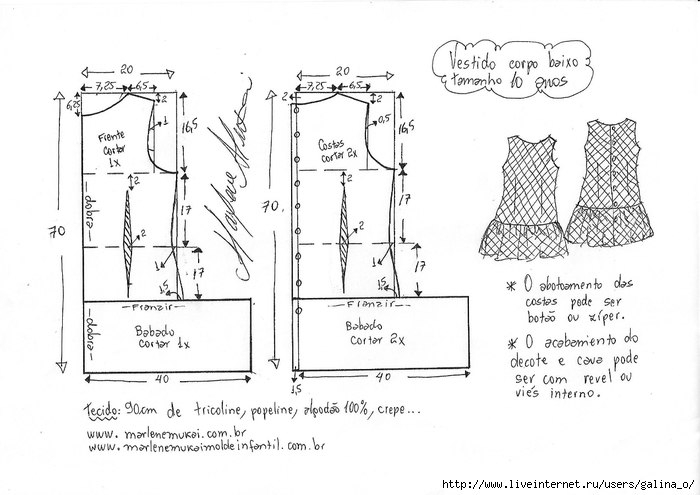 Vestido corpo baixo
tamanho 10 anos
20
7,25 6,5
6,25
2
1
16,5
Frente
cortar
1x
2
dobra
2
17
70
1
17
1,5
Franzir
dobra
Babado
cortar 1x
40
20
7,25 6,5
2
2
0,5
16,5
Costas
cortar 2x
2
17
70
2
1
17
1,5
Franzir
Babado
cortar 2x
1,5
40
Marlene Mukai
* O abotoamento das
costas pode ser
botão ou zíper.
* O acabamento do
decote e cava pode
ser com revel ou
viés interno.
Tecido: 90cm de tricoline, popeline, algodão 100%, crepe...
www.marlenemukai.com.br
www.marlenemukaimoldeinfantil.com.br
http://www.liveinternet.ru/users/galina_o/